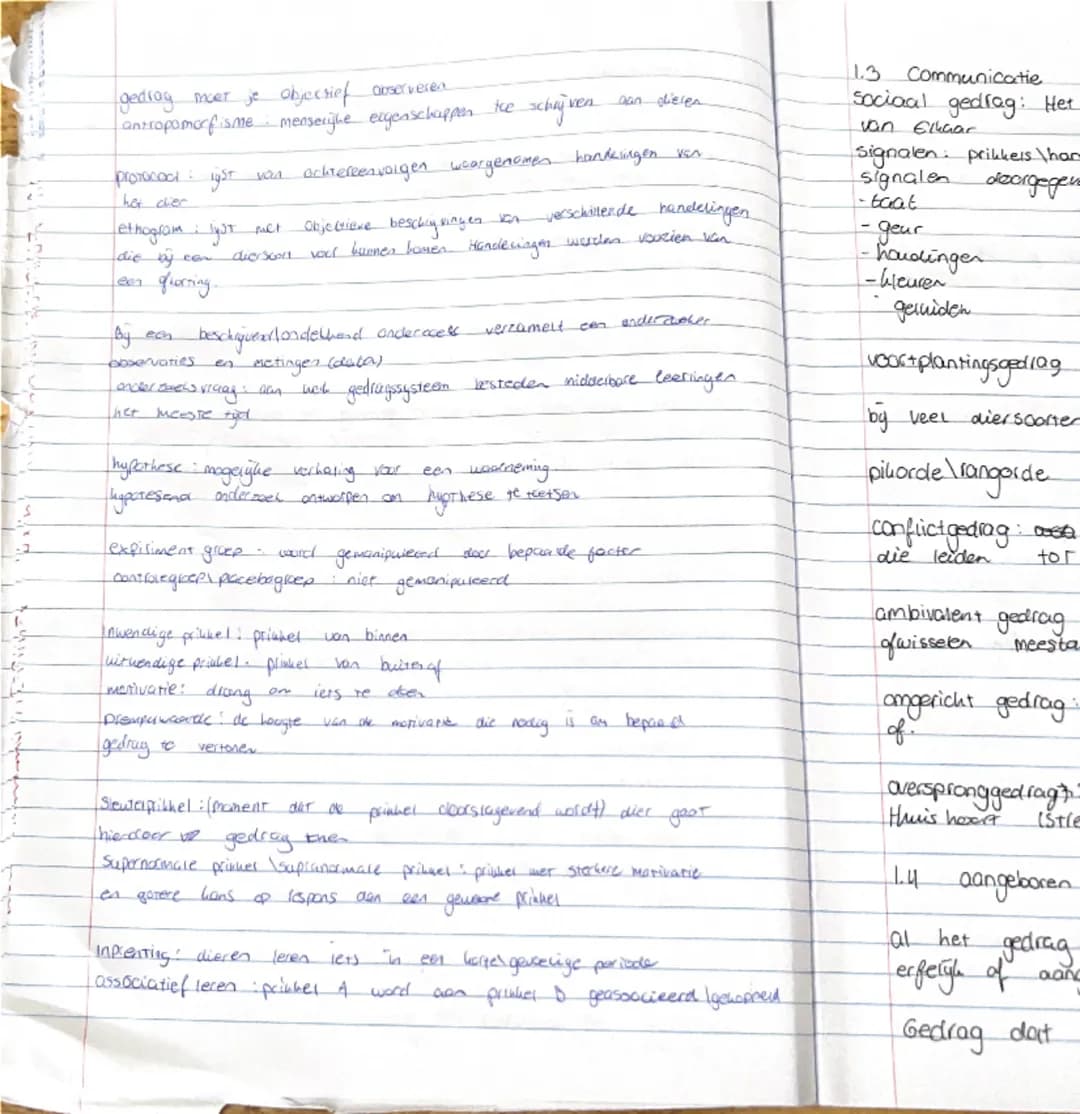 gedrag moet je objectief observeren
antropomorfisme : menselijke eigenschappen toe schrijven aan dieren
protocol : lijst van achtereenvolgen waargenomen handelingen van
het dier
ethogram : lijst met objectieve beschrijvingen van verschillende handelingen
die bij een diersoort voor kunnen komen. Handelingen worden voorzien van
een
Bij een onderzoek verzamelt een onderzoeker
observaties en metingen (data)
onderzoeksvraag : aan welk gedragssysteem besteden middelbare leerlingen
het meeste tijd
hypothese : mogelijke verklaring voor een waarneming
onderzoek ontworpen om hypthese te toetsen
expiriment groep : word gemanipuleerd door bepaalde factor
controlegroep\placebogroep : niet gemanipuleerd
Inwendige prikkel : prikkel van binnen
uitwendige prikkel : prikkel van buitenaf
motivatie : drang om iets te doen
Drempelwaarde : de hoogte van de motivatie die nodig is om bepaald
gedrag te vertonen
Sleutelprikkel : (moment dat de prikkel doorslagevend wordt) dier gaat
hierdoor gedrag
Supernormale prikkel \supranormale prikkel : prikkel met sterkere motivatie
en gotere kans op respons dan een gewone prikkel
Inprenting : dieren leren iets in een korte\gevoelige periode
associatief leren : prikkel A word aan prikkel B geassocieerd \gekoppeld
1.3 Communicatie
sociaal gedrag : Het
van Elkaar
signalen : prikkels \han
signalen doorgegev
- taat
- geur
- houdingen
- kleuren
- geluiden
voortplantingsgedrag
bij veel diersoorten
pikorde \rangorde
conflictgedrag :
die leiden tot
ambivalent gedrag
afwisselen meesta
omgericht gedrag :
of.
overspronggedrag :
thuis hoort (Stle
1.4 aangeboren
al het gedrag
erfelijk of aang
Gedrag dat